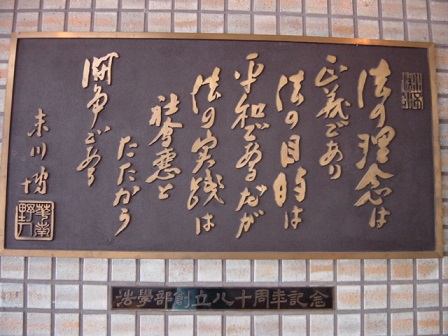 法の理念は
正義であり
法の目的は
平和であるだが
法の実践は
社會悪と
たたかう
闘争である
末川博
法學部創立八十周年記念